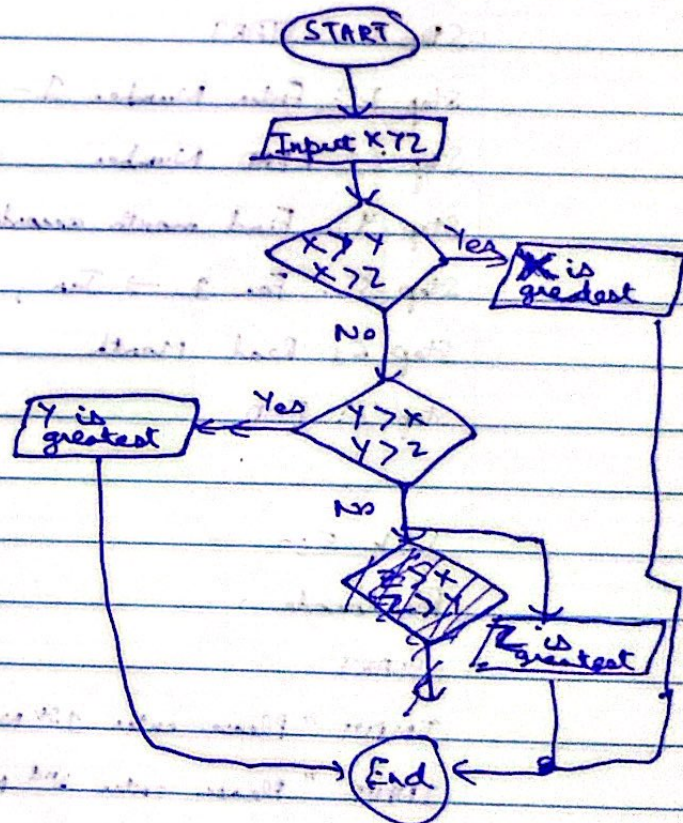 START
Input X Y Z
X > Y
X > Z
Yes
X is
greatest
No
Y > X
Y > Z
Yes
Y is
greatest
No
Z > X
Z > Y
Z is
greatest
End